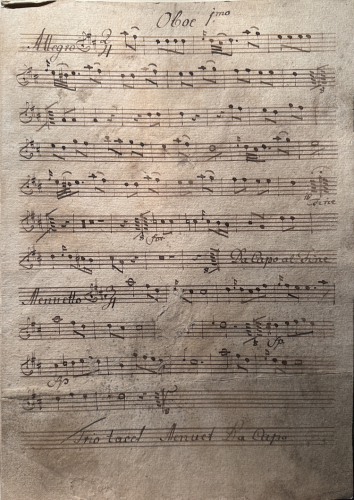 Oboe 1mo
Allegro 3/4
Fine
for
Da Capo al Fine
Menuetto 3/4
fp
fp
Trio tacet Menuet Da Capo